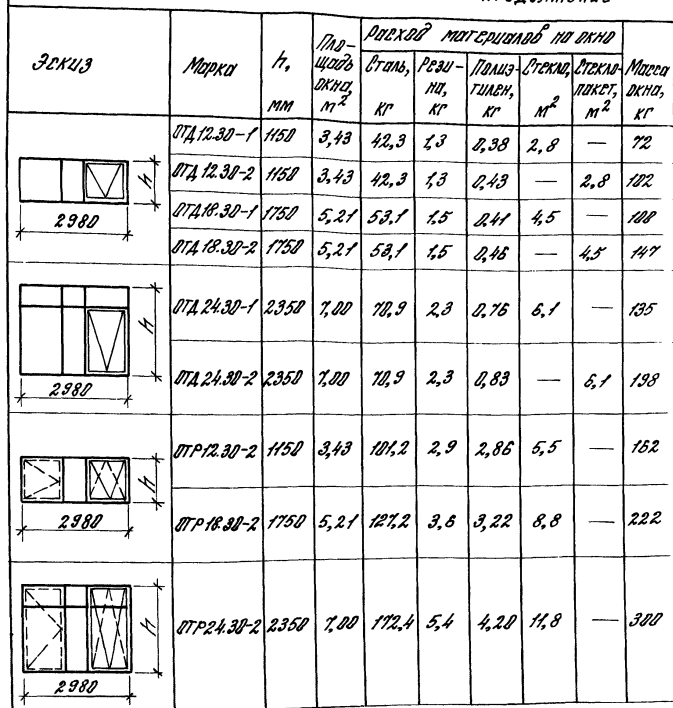 Эскиз | Марка | h, мм | Пло-щадь окна, м² | Расход материалов на окно | Масса окна, кг
Сталь, кг | Рези-на, кг | Полиэ-тилен, кг | Стекло, м² | Стекло-пакет, м²
ОТД 12.30-1 | 1150 | 3,43 | 42,3 | 1,3 | 0,38 | 2,8 | — | 72
ОТД 12.30-2 | 1150 | 3,43 | 42,3 | 1,3 | 0,43 | — | 2,8 | 102
ОТД 18.30-1 | 1750 | 5,21 | 53,1 | 1,5 | 0,41 | 4,5 | — | 108
ОТД 18.30-2 | 1750 | 5,21 | 53,1 | 1,5 | 0,46 | — | 4,5 | 147
h
2980
ОТД 24.30-1 | 2350 | 7,00 | 70,9 | 2,3 | 0,76 | 6,1 | — | 135
ОТД 24.30-2 | 2350 | 7,00 | 70,9 | 2,3 | 0,83 | — | 6,1 | 198
h
2980
ОТР 12.30-2 | 1150 | 3,43 | 101,2 | 2,9 | 2,86 | 5,5 | — | 162
ОТР 18.30-2 | 1750 | 5,21 | 127,2 | 3,6 | 3,22 | 8,8 | — | 222
h
2980
ОТР 24.30-2 | 2350 | 7,00 | 172,4 | 5,4 | 4,20 | 11,8 | — | 300
h
2980